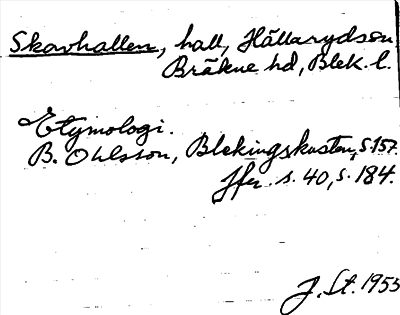 Skavhallen, hall, Hällarydsön
Bräkne hd, Blek. l.
Etymologi.
B. Ohlsson, Blekingskusten, s. 157.
Jfr s. 40, s. 184.
J. St. 1955